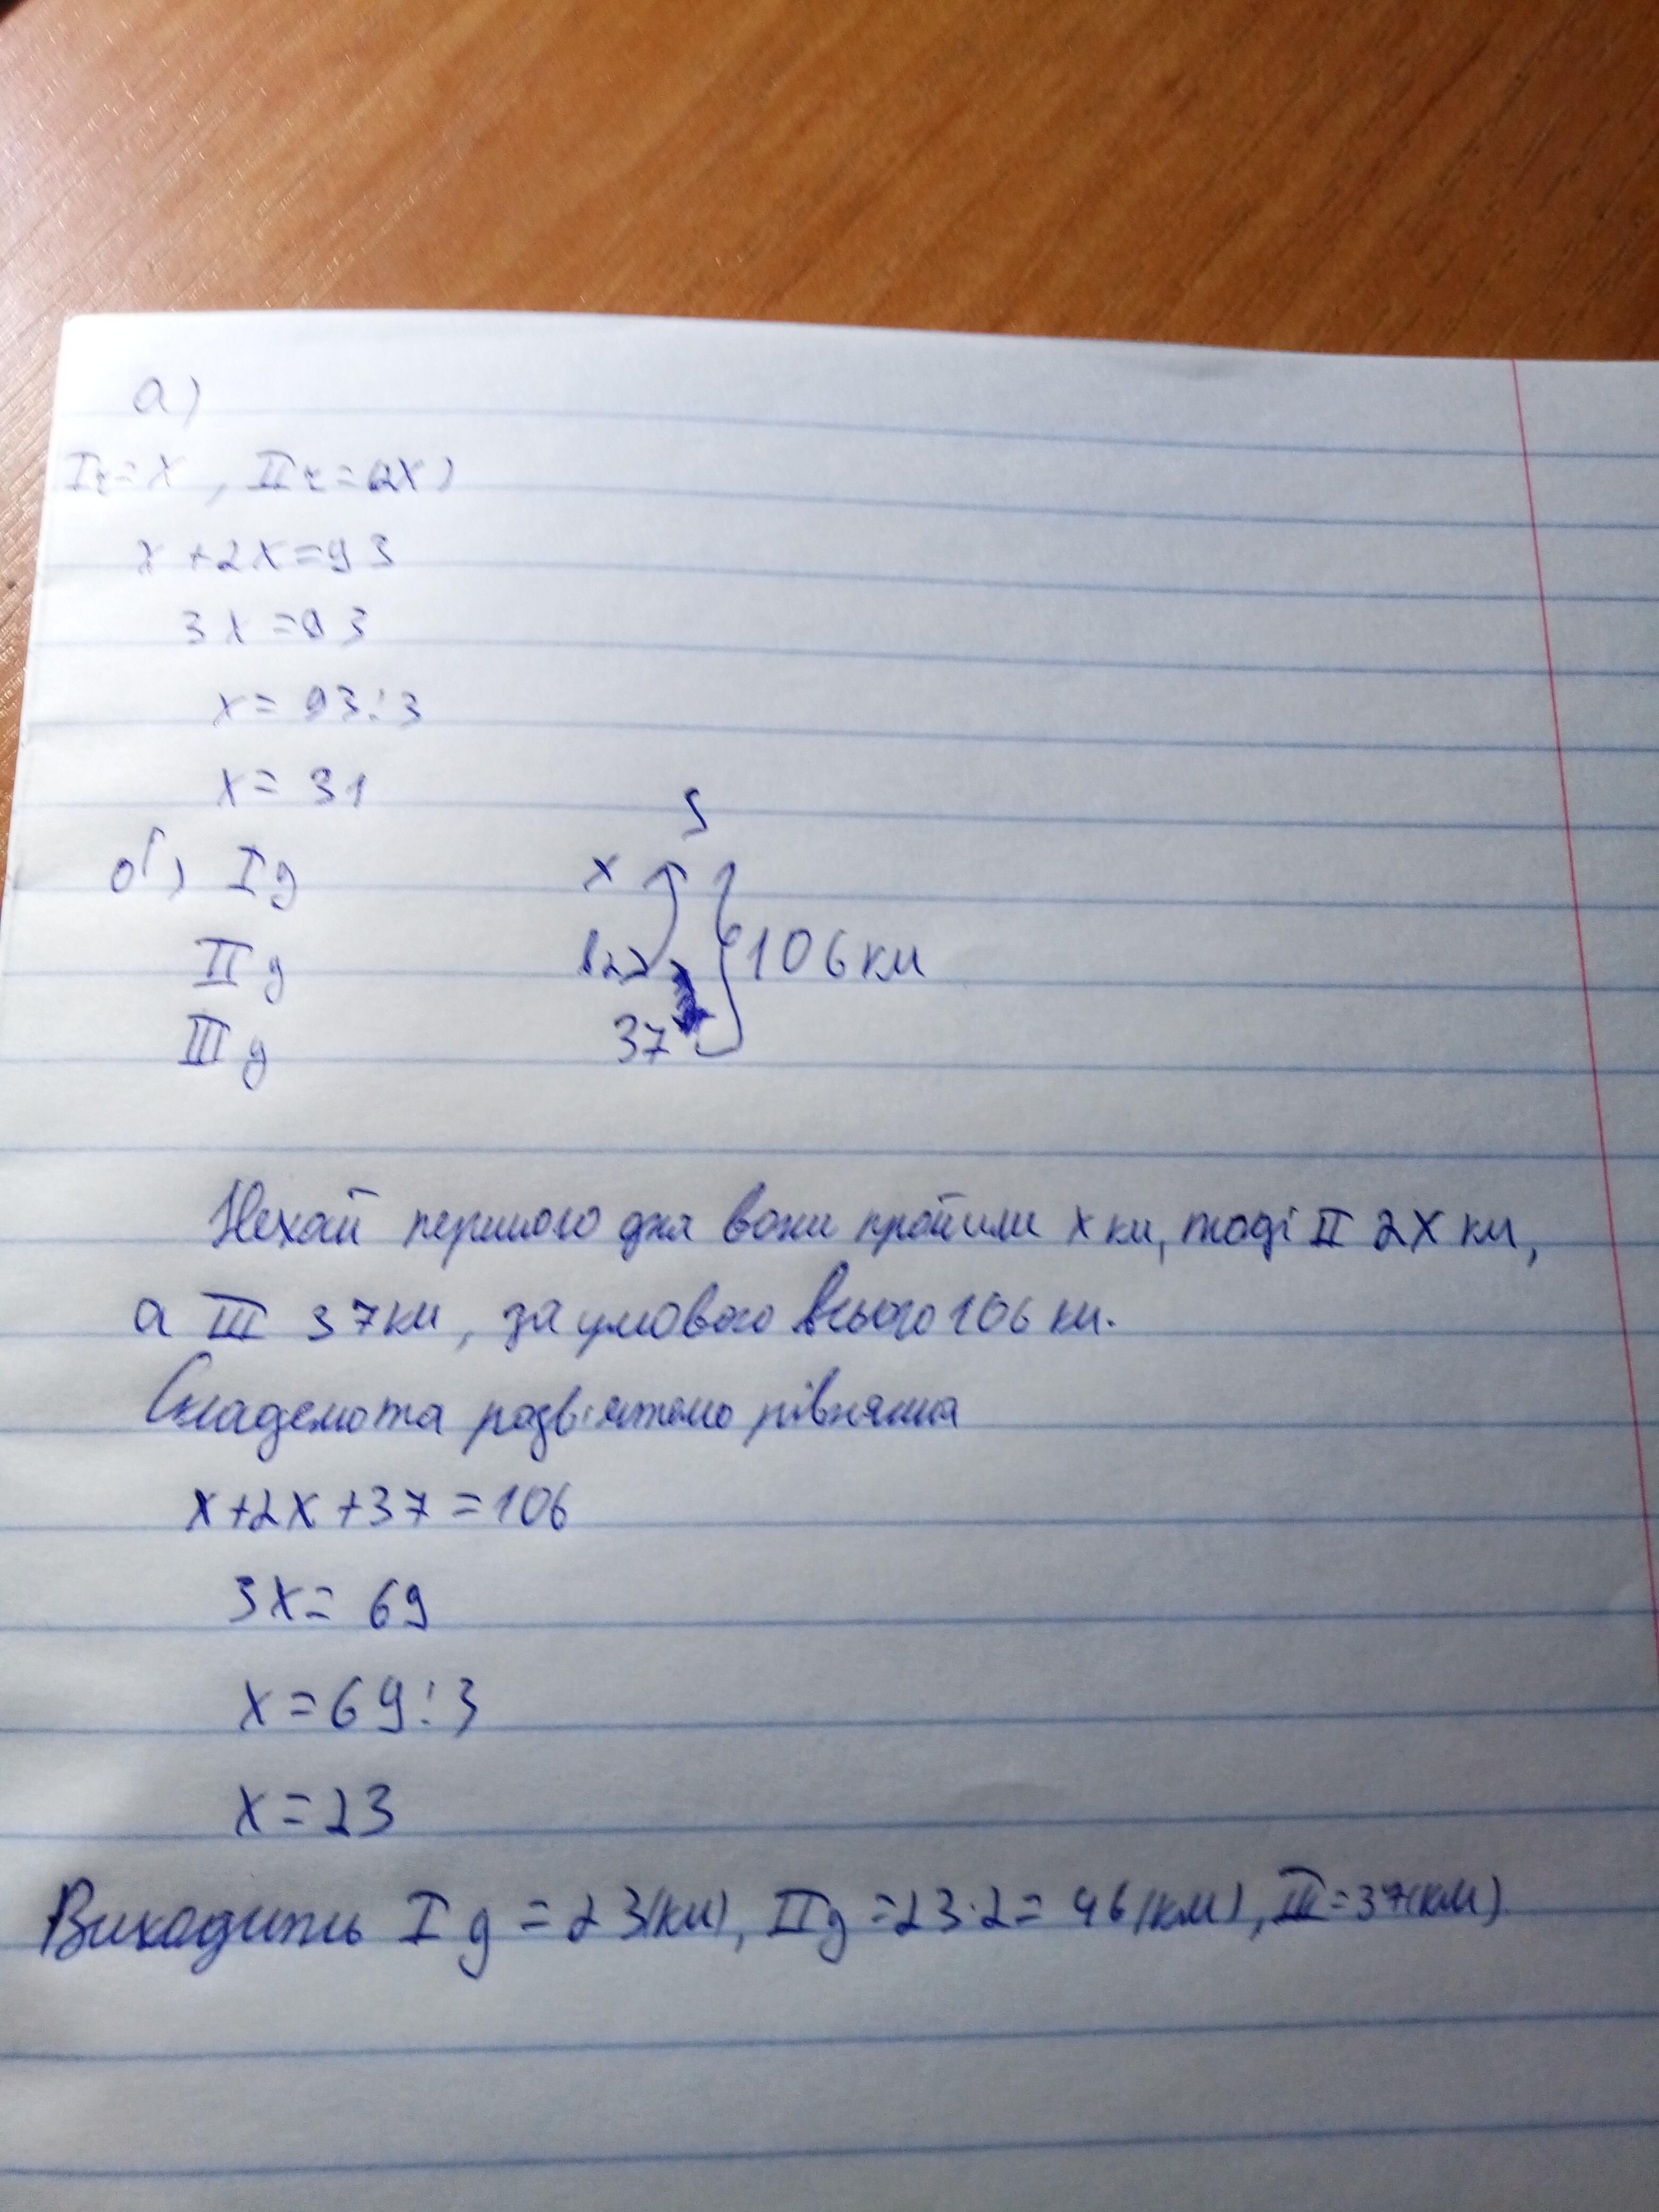 а)
Iч=x, IIч=2x)
x+2x=93
3x=93
x=93:3
x=31
S
б) I д x
II д в 2> 106км
III д 37
Нехай першого дня вони пройшли x км, тоді II 2x км,
а III 37км, за умовою всього 106 км.
Складемо та розв'яжемо рівняння
x+2x+37=106
3x=69
x=69:3
x=23
Виходить I д = 23(км), IIд=23·2=46(км), III=37(км)